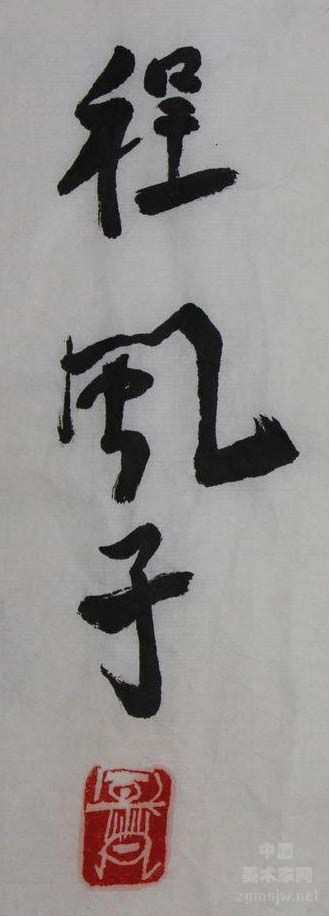 程風子
中国
美术家网
zgmsjw.net